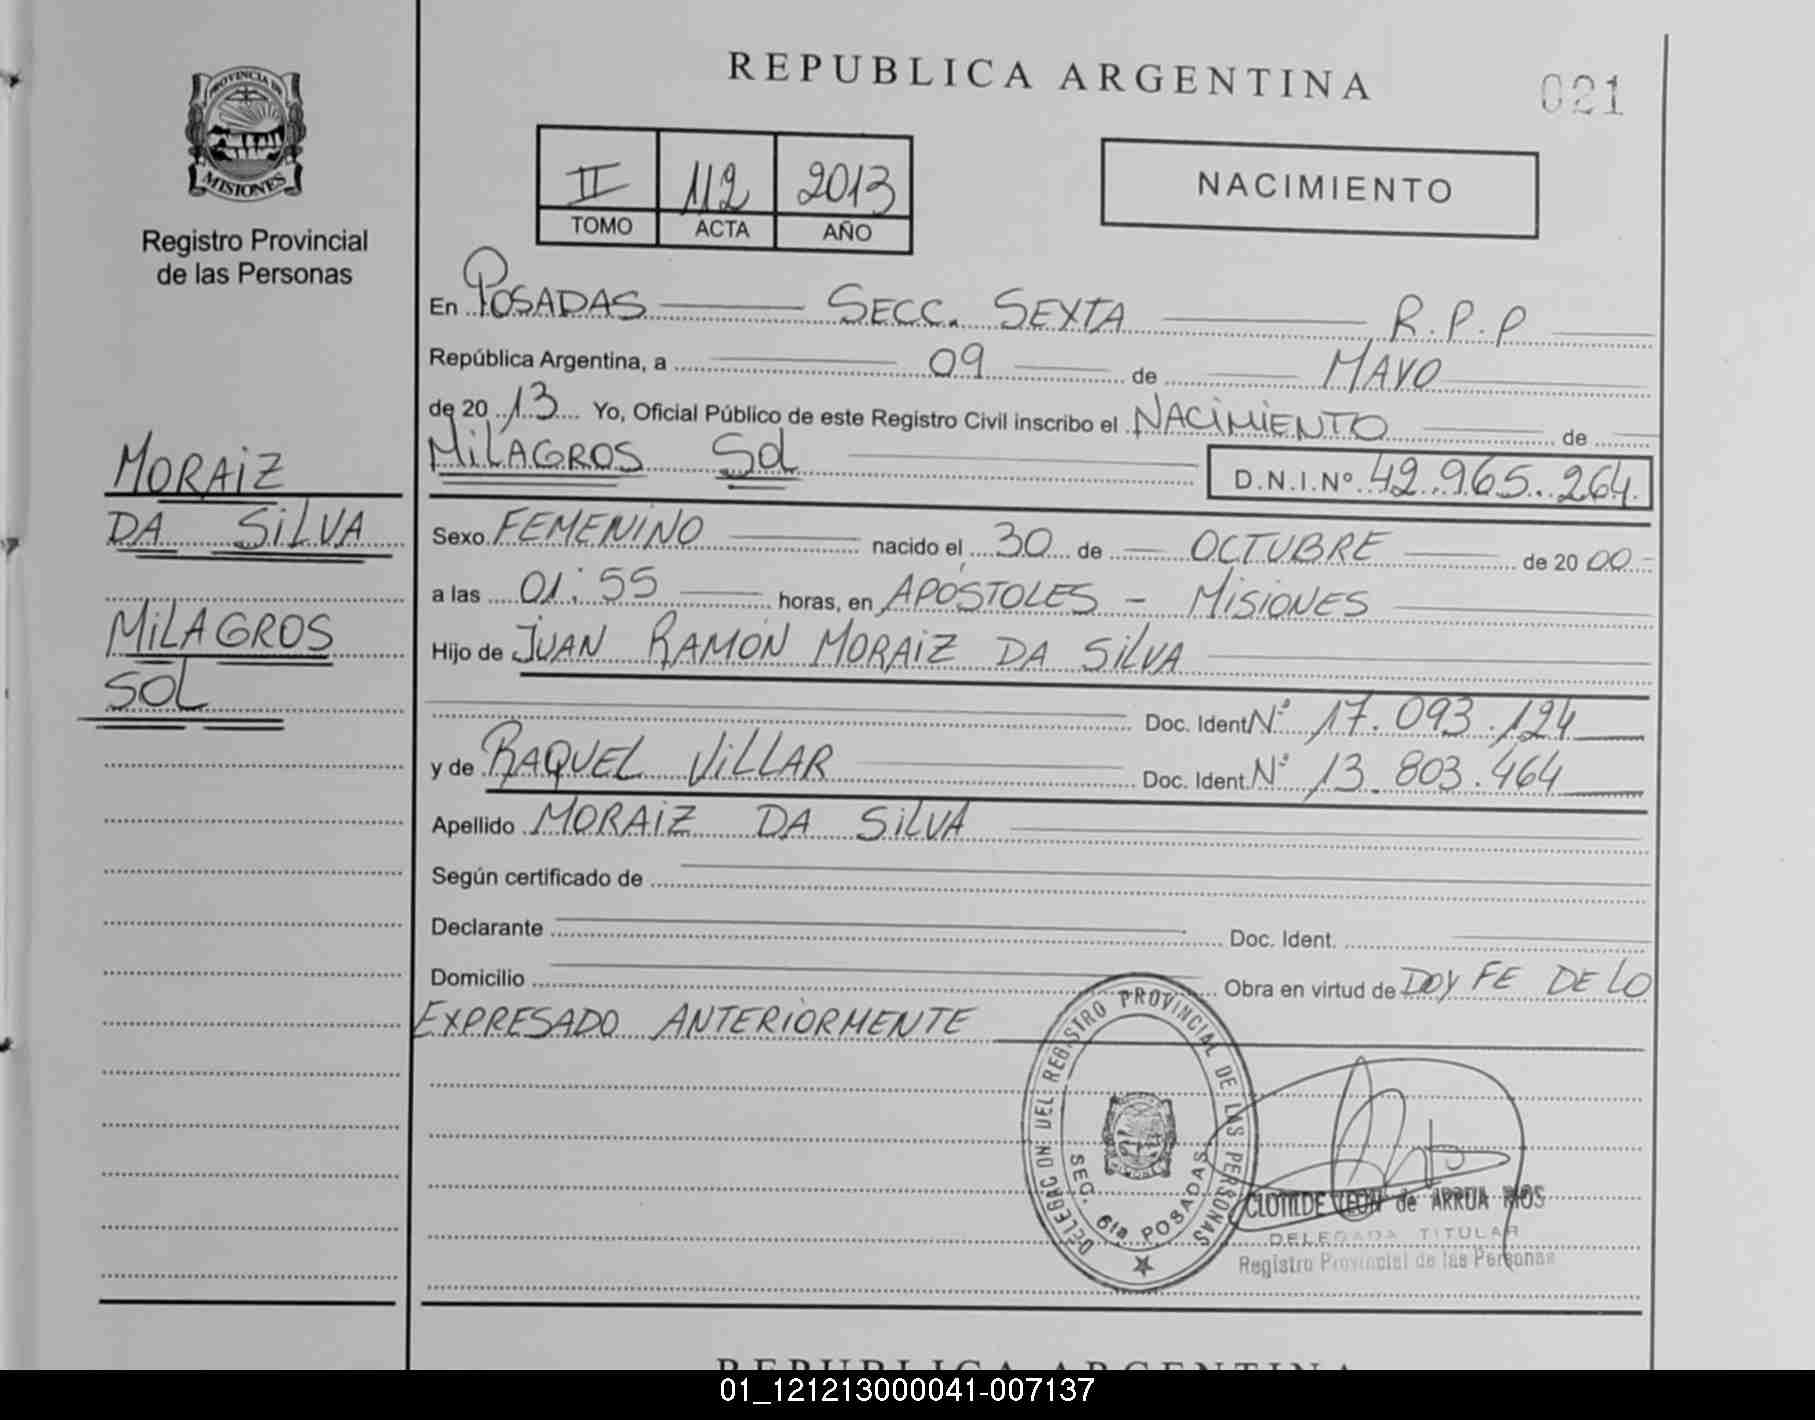 REPUBLICA ARGENTINA
021
PROVINCIA DE
MISIONES
Registro Provincial
de las Personas
II 112 2013
TOMO ACTA AÑO
NACIMIENTO
En POSADAS SECC. SEXTA R.P.P
República Argentina, a 09 de MAYO
de 2013 Yo, Oficial Público de este Registro Civil inscribo el NACIMIENTO de
MILAGROS SOL D.N.I.Nº 42.965.264
Sexo FEMENINO nacido el 30 de OCTUBRE de 2000
a las 01:55 horas, en APÓSTOLES - MISIONES
Hijo de JUAN RAMÓN MORAIZ DA SILVA
Doc. Ident. Nº 17.093.124
y de RAQUEL VILLAR Doc. Ident. Nº 13.803.464
Apellido MORAIZ DA SILVA
Según certificado de
Declarante Doc. Ident.
Domicilio Obra en virtud de DOY FE DE LO
EXPRESADO ANTERIORMENTE
MORAIZ
DA SILVA
MILAGROS
SOL
DELEGACION DEL REGISTRO PROVINCIAL DE LAS PERSONAS
SEC. 6ta POSADAS
CLOTILDE LEON de ARRUA RIOS
DELEGADA TITULAR
Registro Provincial de las Personas
REPUBLICA ARGENTINA
01_121213000041-007137